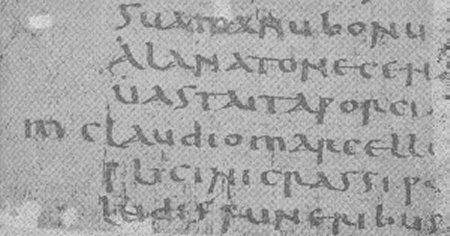 suamanubonu
alanatonecen
uastaitaporci
m claudiomarcell
p licinicrassi p
ludisfuneribus